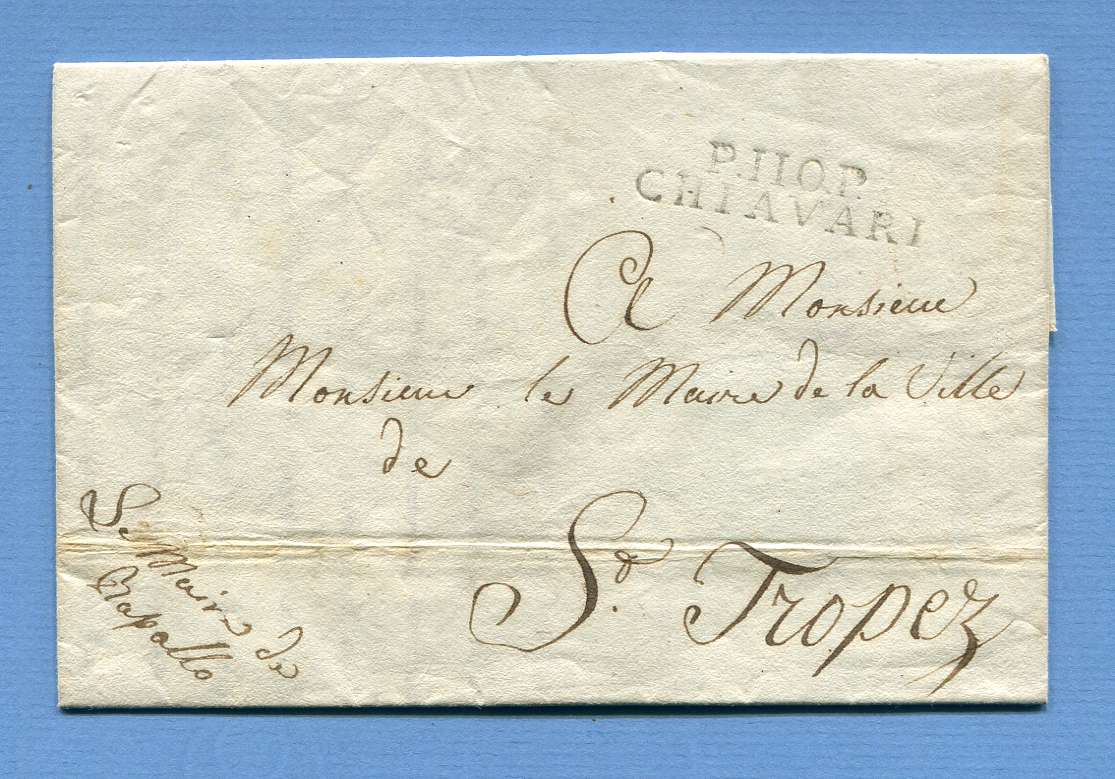 P.110.P.
CHIAVARI
A Monsieur
Monsieur le Maire de la Ville
de
St. Tropez
Le Maire de
Rapallo